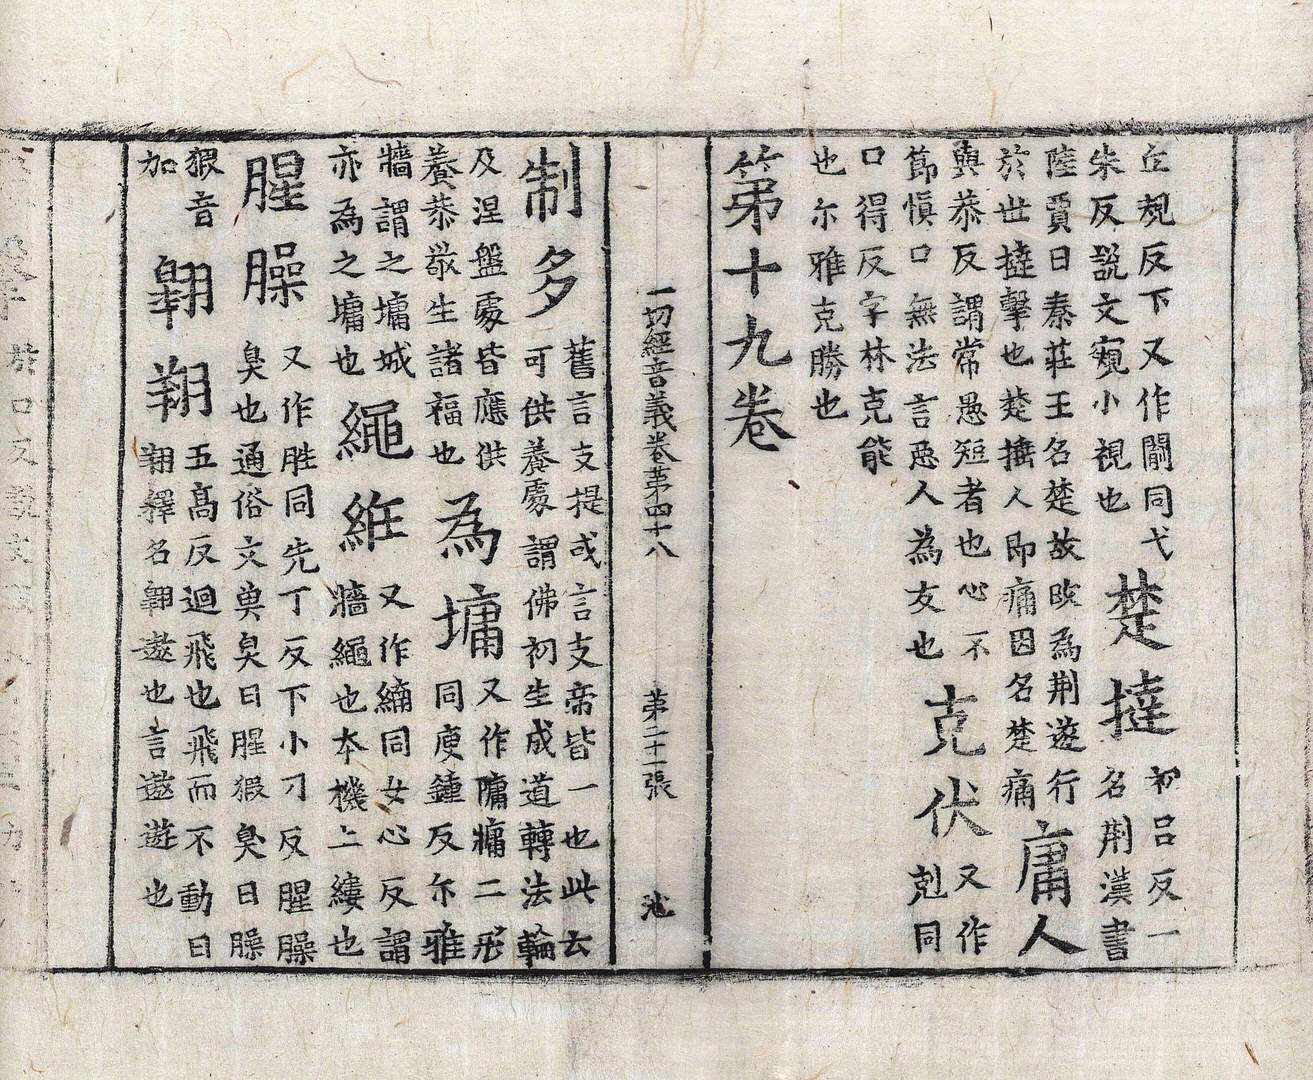 丘規反下又作闚同弋
朱反説文窺小視也
楚撻
初呂反一
名荆漢書
陸賈曰秦莊王名楚故改為荆遂行
於世撻擊也楚捶人即痛因名楚痛
庸人
與恭反謂常愚短者也心不
節慎口無法言惡人為友也
克伏
又作
剋同
口得反字林克能
也尒雅克勝也
第十九卷
一切經音義卷苐四十八 第二十一張 池
制多
舊言支提或言支帝皆一也此云
可供養處謂佛初生成道轉法輪
及涅盤處皆應供
養恭敬生諸福也
為墉
又作二形
同庾鍾反尒雅
牆謂之墉城
亦為之墉也
繩絍
又作同女心反謂
牆繩也本機上縷也
腥臊
又作胜同先丁反下小刀反腥臊
臭也通俗文臭曰腥猳臭曰臊
猳音
加
翱翔
五髙反迴飛也飛而不動曰
翔釋名翱遨也言遨遊也